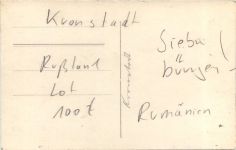 Kronstadt
Rußland
Lot
100 €
Kronstadt
Sieben
bürgen!
Rumänien